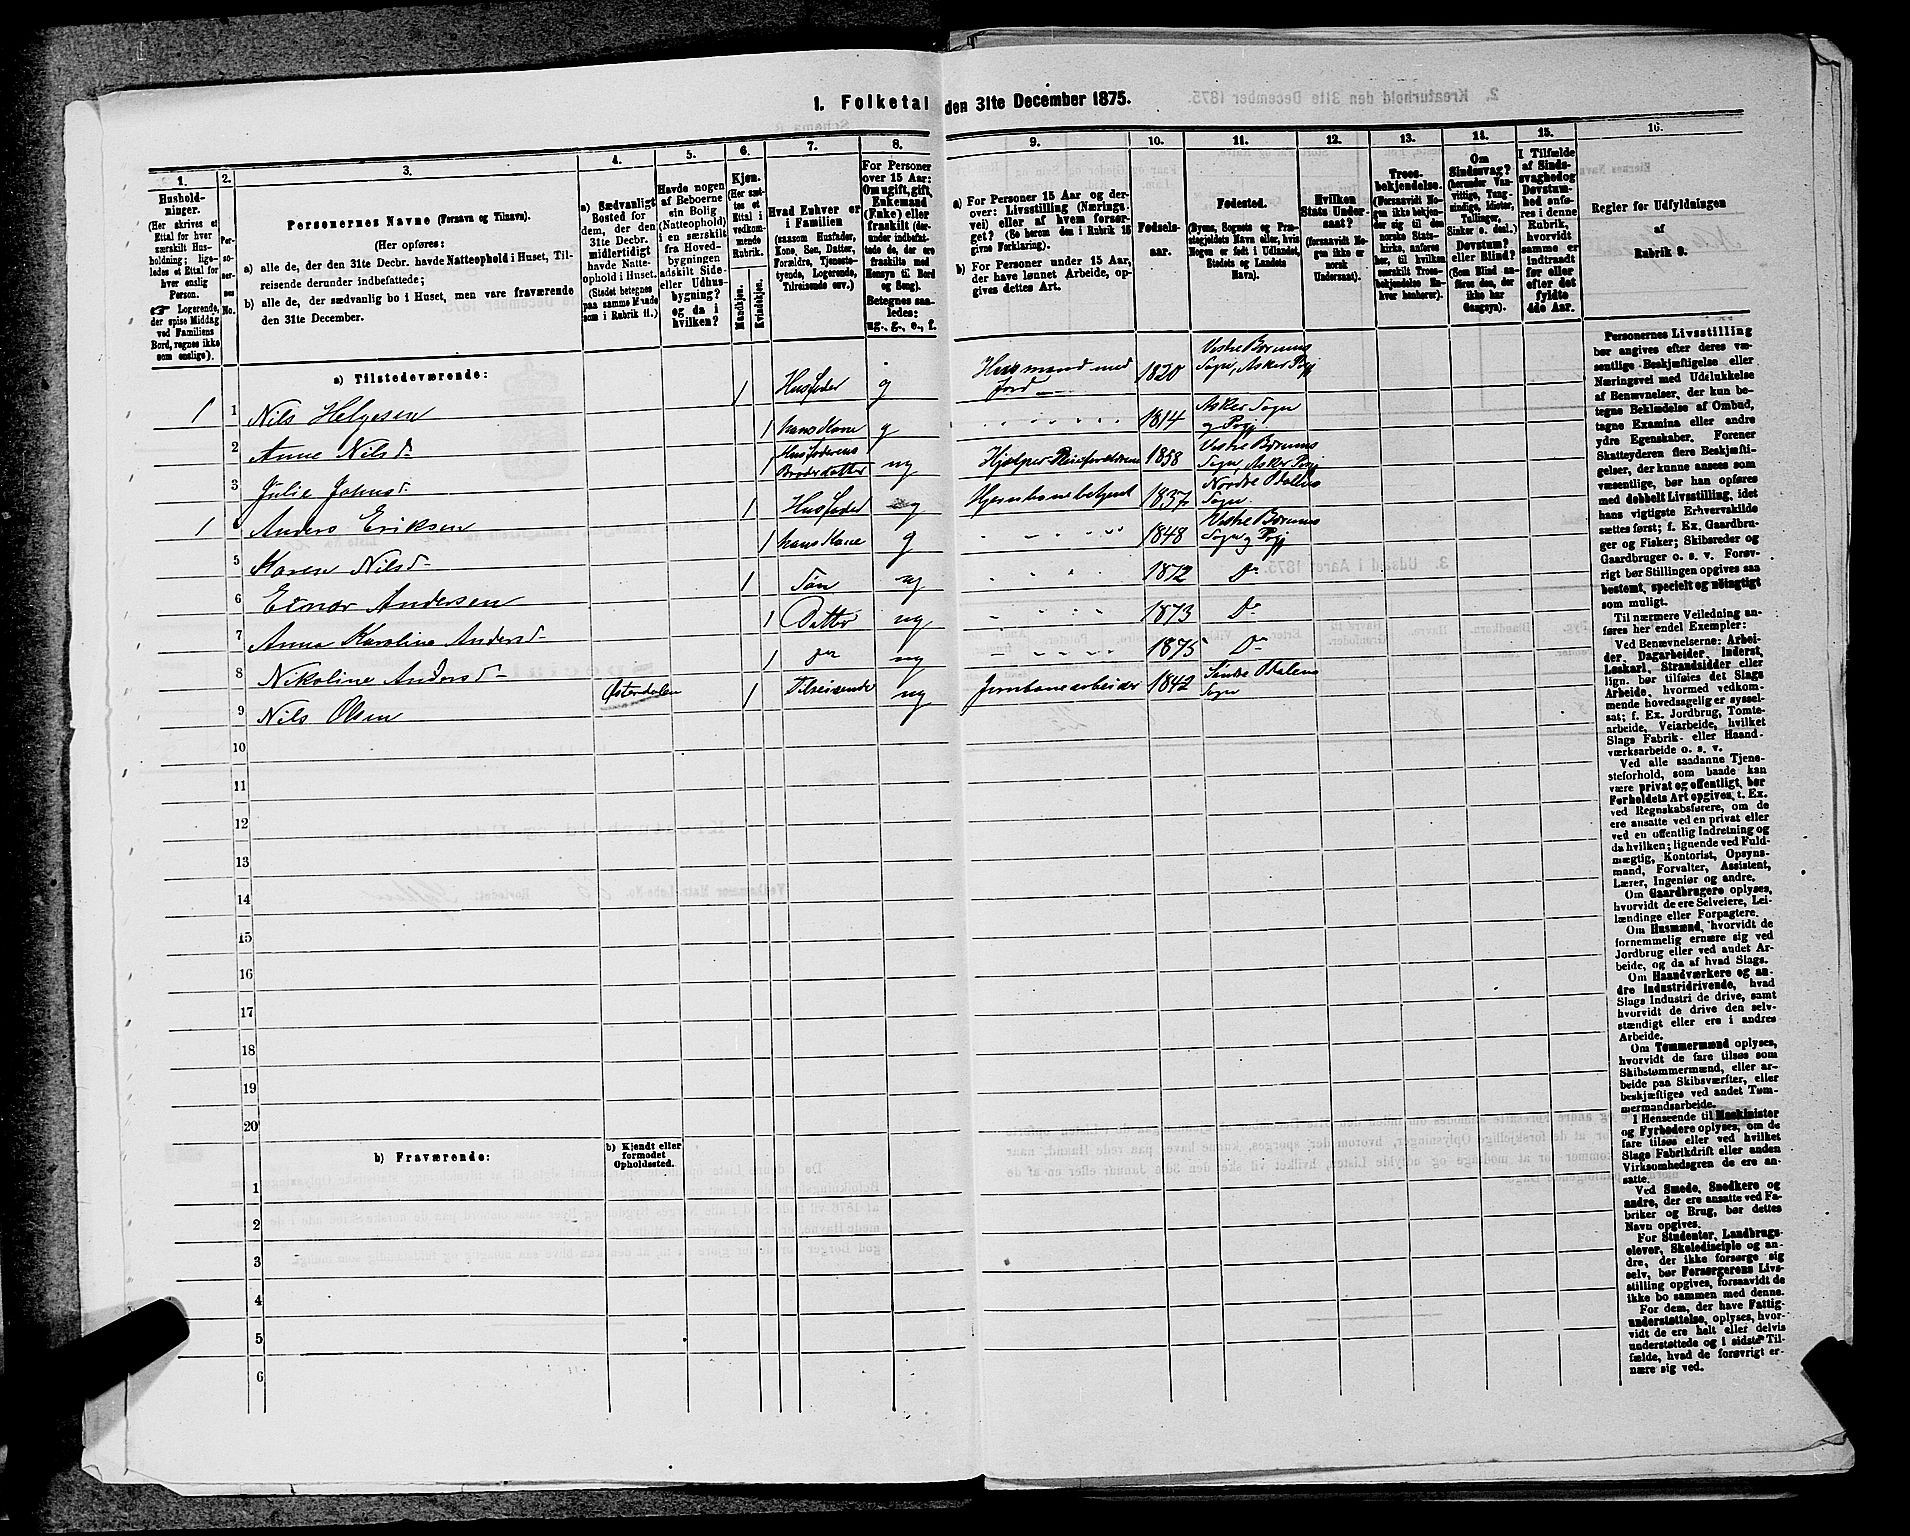 1. Folketal den 31te December 1875.
1.
Hushold-
ninger.
(Her skrives et
Ettal for hver
særskilt Hus-
holdning; lige-
ledes et Ettal for
hver enslig
Person.
☞ Logerende,
der spise Middag
ved Familiens
Bord, regnes ikke
som enslige).
2.
Per-
so-
ner-
nes
No.
3.
Personernes Navne (Fornavn og Tilnavn).
(Her opføres:
a) alle de, der den 31te Decbr. havde Natteophold i Huset, Til-
reisende derunder indbefattede;
b) alle de, der sædvanlig bo i Huset, men vare fraværende
den 31te December.
4.
a) Sædvanligt
Bosted for
dem, der den
31te Decbr.
midlertidigt
havde Natte-
ophold i Huset.
(Stedet betegnes
paa samme Maade
som i Rubrik 11.)
5.
Havde nogen
af Beboerne
sin Bolig
(Natteophold)
i en særskilt
fra Hoved-
bygningen
adskilt Side-
eller Udhus-
bygning?
og da i
hvilken?
6.
Kjøn.
(Her sæt-
tes et
Ettal i
vedkom-
mende
Rubrik.
Mandkjøn.
Kvindekjøn.
7.
Hvad Enhver er
i Familien
(saasom Husfader,
Kone, Søn, Datter,
Forældre, Tjeneste-
tyende, Logerende,
Tilreisende osv.)
8.
For Personer
over 15 Aar:
Om ugift, gift,
Enkemand
(Enke) eller
fraskilt (der-
under indbefat-
tede de, der ere
fraskilte med
Hensyn til Bord
og Seng).
Betegnes saa-
ledes:
ug., g., e., f.
9.
a) For Personer 15 Aar og der-
over: Livsstilling (Nærings-
vei) eller af hvem forsør-
get? (Se herom den i Rubrik 16
givne Forklaring).
b) For Personer under 15 Aar,
der have lønnet Arbeide, op-
gives dettes Art.
10.
Fødsels-
aar.
11.
Fødested.
(Byens, Sognets og Præ-
stegjeldets Navn eller, hvis
Nogen er født i Udlandet,
Stedets og Landets
Navn).
12.
Hvilken
Stats Under-
saat?
(forsaavidt No-
gen ikke er
norsk
Undersaat).
13.
Troes-
bekjendelse.
(Forsaavidt No-
gen ikke bekjen-
der sig til den
norske Stats-
kirke, anføres
her, til hvilken
særskilt Troes-
bekjendelse En-
hver henhører).
14.
Om
Sindssvag?
(herunder Van-
vittige, Tung-
sindige, Idioter,
Tullinger,
Sinker o. desl.)
Døvstum?
eller Blind?
(Som Blind an-
føres den, der
ikke har
Gangsyn).
15.
I Tilfælde
af Sinds-
svaghed og
Døvstum-
hed anfø-
res i denne
Rubrik,
hvorvidt
samme er
indtraadt
før eller
efter det
fyldte
4de Aar.
16.
Regler for Udfyldningen
af
Rubrik 9.
a) Tilstedeværende:
1 1 Nils Helgesen 1 Husfader g Husmand med Jord 1820 Vestre Bærums Sogn, Asker Pgj
2 Anne Nilsd. 1 hans Kone g " " " " 1814 Asker Sogn og Pgj
3 Julie Johnsd. 1 Husfaderens Broderdatter ug Hjælper Pleieforældrene 1858 Vestre Bærums Sogn, Asker Pgj
1 4 Anders Eriksen 1 Husfader g Jernbanebetjent 1837 Nordre Odalens Sogn
5 Karen Nilsd. 1 hans Kone g " " " " 1848 Vestre Bærums Sogn og Pgj
6 Einar Andersen 1 Søn ug " " " 1872 Do
7 Anna Karoline Andersd. 1 Datter ug " " " 1873 Do
8 Nikoline Andersd. 1 do ug " " " " 1875 Do
9 Nils Olsen Østerdalen 1 Tilreisende ug Jernbanearbeider 1842 Søndre Odalens Sogn
10
11
12
13
14
15
16
17
18
19
20
b) Fraværende:
b) Kjendt eller
formodet
Opholdssted.
1
2
3
4
5
6
Personernes Livsstilling
bør angives efter deres væ-
sentlige Beskjæftigelse eller
Næringsvei med Udelukkelse
af Benævnelser, der kun be-
tegne Beklædelse af Ombud,
tagne Examina eller andre
ydre Egenskaber. Forener
Skatteyderen flere Beskjæfti-
gelser, der kunne ansees som
væsentlige, bør han opføres
med dobbelt Livsstilling, idet
hans vigtigste Erhvervskilde
sættes først; f. Ex. Gaardbru-
ger og Fisker; Skibsreder og
Gaardbruger o. s. v. Forøv-
rigt bør Stillingen opgives saa
bestemt, specielt og nøiagtigt
som muligt.
Til nærmere Veiledning an-
føres her endel Exempler:
Ved Benævnelserne: Arbei-
der, Dagarbeider, Inderst,
Løskarl, Strandsidder eller
lign. bør tilføies det Slags
Arbeide, hvormed vedkom-
mende hovedsagelig er syssel-
sat; f. Ex. Jordbrug, Tomte-
arbeide, Veiarbeide, hvilket
Slags Fabrik- eller Haand-
værksarbeide o. s. v.
Ved alle saadanne Tjene-
steforhold, som baade kan
være privat og offentligt, bør
Forholdets Art opgives, t. Ex.
ved Regnskabsførere, om de
ere ansatte ved en privat eller
ved en offentlig Indretning og
da hvilken; lignende ved Fuld-
mægtig, Kontorist, Opsyns-
mand, Forvalter, Assistent,
Lærer, Ingeniør og andre.
Om Gaardbrugere oplyses,
hvorvidt de ere Selveiere, Lei-
lændinge eller Forpagtere.
Om Husmænd, hvorvidt de
fornemmelig ernære sig ved
Jordbrug eller ved andet Ar-
beide, og da af hvad Slags.
Om Haandværkere og an-
dre Industridrivende, hvad
Slags Industri de drive, samt
hvorvidt de drive den selv-
stændigt eller ere i andres
Arbeide.
Om Tømmermænd oplyses,
hvorvidt de fare tilsøs som
Skibstømmermænd, eller ar-
beide paa Skibsværfter, eller
beskjæftiges ved andet Tøm-
mermandsarbeide.
I Henseende til Maskinister
og Fyrbødere oplyses, om de
fare tilsøs eller ved hvilket
Slags Fabrikdrift eller anden
Virksomhedsgren de ere an-
satte.
Ved Smede, Snedkere og
andre, der ere ansatte ved Fa-
briker og Brug, bør dettes
Navn opgives.
For Studenter, Landbrugs-
elever, Skoledisciple og an-
dre, der ikke forsørge sig
selv, bør Forsørgerens Livs-
stilling opgives, forsaavidt de
ikke bo sammen med denne.
For dem, der have Fattig-
understøttelse, oplyses, hvor-
vidt de ere helt eller delvis
understøttede og i sidste Til-
fælde, hvad de forøvrigt er-
nære sig ved.